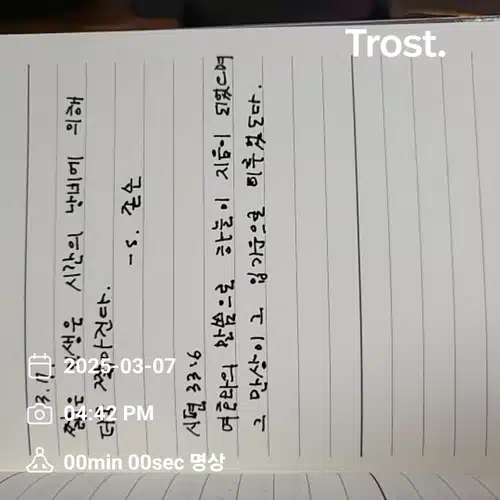 Trost.
3.11
짧은 인생은 시간의 낭비에 의해
더욱 짧아진다.
- S. 존슨
시편 33:6
여호와의 말씀으로 하늘이 지음이 되었으며
그 만상이 그 입기운으로 이루었도다.
2025-03-07
04:42 PM
00min 00sec 명상